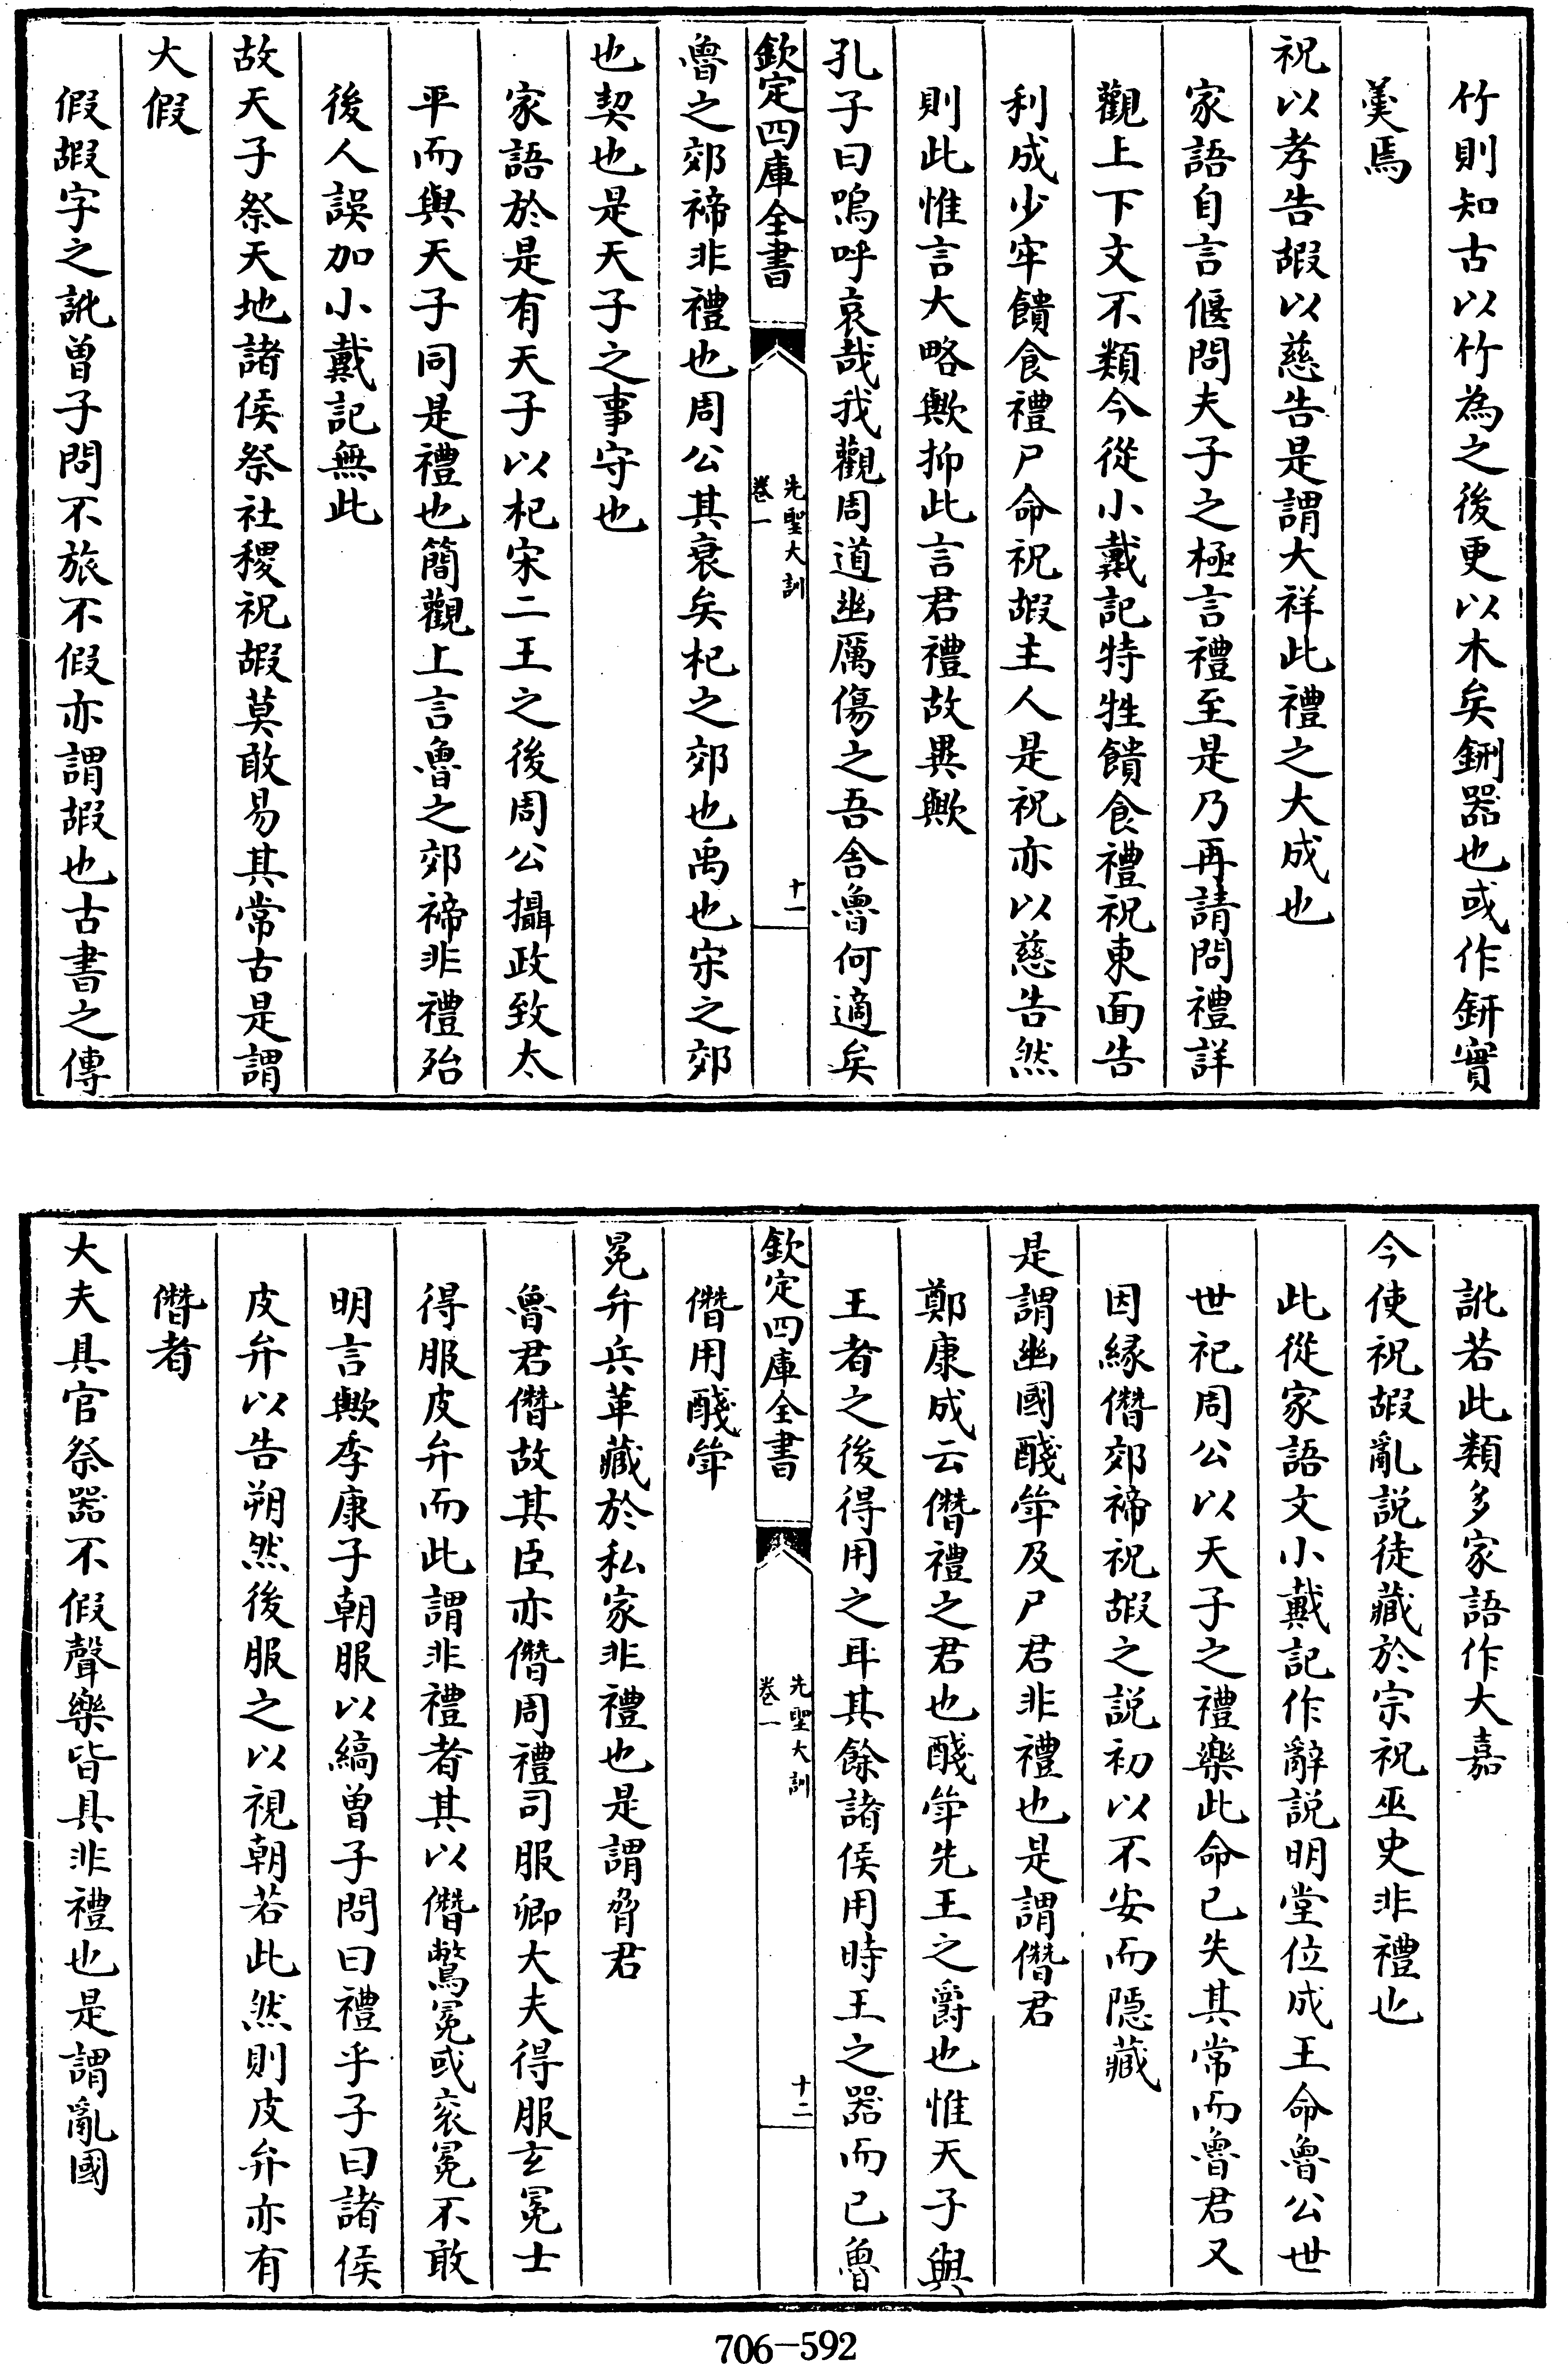 竹則知古以竹為之後更以木矣鉶器也或作鈃實
羮焉
祝以孝告嘏以慈告是謂大祥此禮之大成也
家語自言偃問夫子之極言禮至是乃再請問禮詳
觀上下文不類今從小戴記特牲饋食禮祝東面告
利成少牢饋食禮尸命祝嘏主人是祝亦以慈告然
則此惟言大略歟抑此言君禮故異歟
孔子曰嗚呼哀哉我觀周道幽厲傷之吾舍魯何適矣
欽定四庫全書
先聖大訓
卷一
十一
魯之郊禘非禮也周公其衰矣杞之郊也禹也宋之郊
也契也是天子之事守也
家語於是有天子以杞宋二王之後周公攝政致太
平而與天子同是禮也簡觀上言魯之郊禘非禮殆
後人誤加小戴記無此
故天子祭天地諸侯祭社稷祝嘏莫敢易其常古是謂
大假
假嘏字之訛曾子問不旅不假亦謂嘏也古書之傳
訛若此類多家語作大嘉
今使祝嘏亂説徒藏於宗祝巫史非禮也
此從家語文小戴記作辭説明堂位成王命魯公世
世祀周公以天子之禮樂此命已失其常而魯君又
因縁僭郊禘祝嘏之説初以不安而隠藏
是謂幽國醆斝及尸君非禮也是謂僭君
鄭康成云僭禮之君也醆斝先王之爵也惟天子與
王者之後得用之耳其餘諸侯用時王之器而已魯
欽定四庫全書
先聖大訓
卷一
十二
僭用醆斝
冕弁兵革藏於私家非禮也是謂脅君
魯君僭故其臣亦僭周禮司服卿大夫得服玄冕士
得服皮弁而此謂非禮者其以僭驚冕或衮冕不敢
明言歟季康子朝服以縞曾子問曰禮乎子曰諸侯
皮弁以告朔然後服之以視朝若此然則皮弁亦有
僭者
大夫具官祭器不假聲樂皆具非禮也是謂亂國
706-592